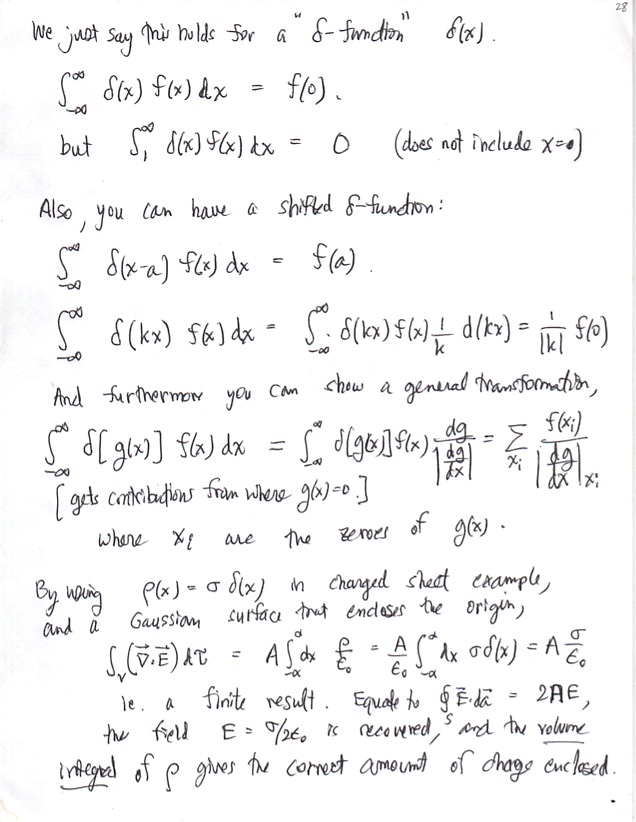 28
We just say this holds for a "δ-function" δ(x).
∫_{-∞}^{∞} δ(x) f(x) dx = f(0).
but ∫_{1}^{∞} δ(x) f(x) dx = 0 (does not include x=0)
Also, you can have a shifted δ-function:
∫_{-∞}^{∞} δ(x-a) f(x) dx = f(a).
∫_{-∞}^{∞} δ(kx) f(x) dx = ∫_{-∞}^{∞} δ(kx) f(x) 1/k d(kx) = 1/|k| f(0)
And furthermore you can show a general transformation,
∫_{-∞}^{∞} δ[g(x)] f(x) dx = ∫_{-∞}^{∞} δ[g(x)] f(x) dg/|dg/dx| = Σ_{x_i} f(x_i)/|dg/dx|_{x_i}
[gets contributions from where g(x)=0.]
where x_i are the zeroes of g(x).
By using ρ(x) = σ δ(x) in charged sheet example,
and a Gaussian surface that encloses the origin,
∫_V (∇⃗·E⃗) dτ = A ∫_{-a}^{a} dx ρ/ε₀ = A/ε₀ ∫_{-a}^{a} dx σδ(x) = A σ/ε₀
ie. a finite result. Equate to ∮_S E⃗·da⃗ = 2AE,
the field E = σ/2ε₀ is recovered, and the volume
integral of ρ gives the correct amount of charge enclosed.